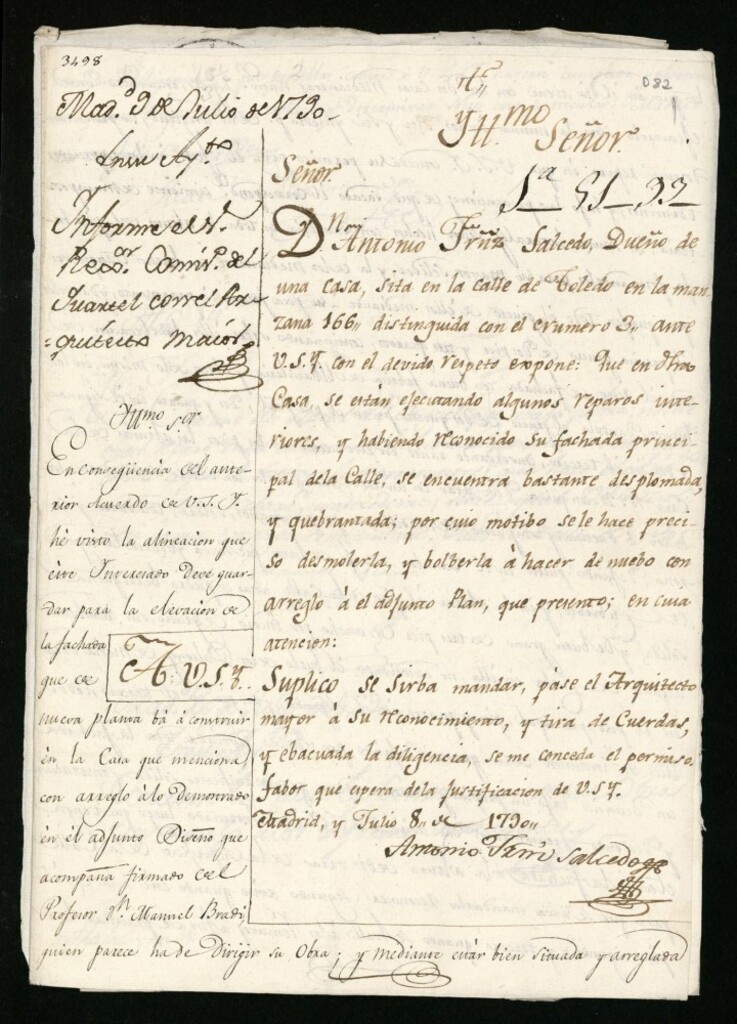 3498
082
Mad.d 9 de Julio de 1790.
Ill.mo
y
Señor.
Señor.
1a 51 33
En su Ay.to
Informe el S.
Reg.or Comis.o del
Quartel con el Ar-
=quitecto maior.
D.n Antonio Frnz Salcedo, Dueño de
una casa, sita en la calle de Toledo en la man-
zana 166,, distinguida con el numero 3,, ante
V.S.Y. con el devido respeto expone: Que en dha
Casa, se están ejecutando algunos reparos inte-
riores, y habiendo reconocido su fachada princi-
pal dela Calle, se encuentra bastante desplomada,
y quebrantada; por cuio motibo sele hace preci-
so desmolerla, y bolberla à hacer de nuebo con
arreglo à el adjunto Plan, que presento; en cuia
atencion:
A. V.S.Y.
Suplico se sirba mandar, pase el Arquitecto
mayor à su reconocimiento, y tira de Cuerdas,
y ebacuada la diligencia, se me conceda el permiso.
fabor que espera dela justificacion de V.S.Y.
Madrid, y Julio 8,, de 1790,,
Antonio Frnz Salcedo
Yll.mo S.or
En conseqüencia del ante-
rior Acuerdo de V.S.I.
hè visto la alineacion que
este Interesado Deve guar-
dar para la elevacion de
la fachada
que de
nueva planta bà à construir
en la Casa que menciona
con arreglo à lo demostrado
en el adjunto Diseño que
acompaña firmado del
Profesor D.n Manuel Bradi,
quien parece ha de Dirigir su Obra; y mediante estàr bien situada y arreglada